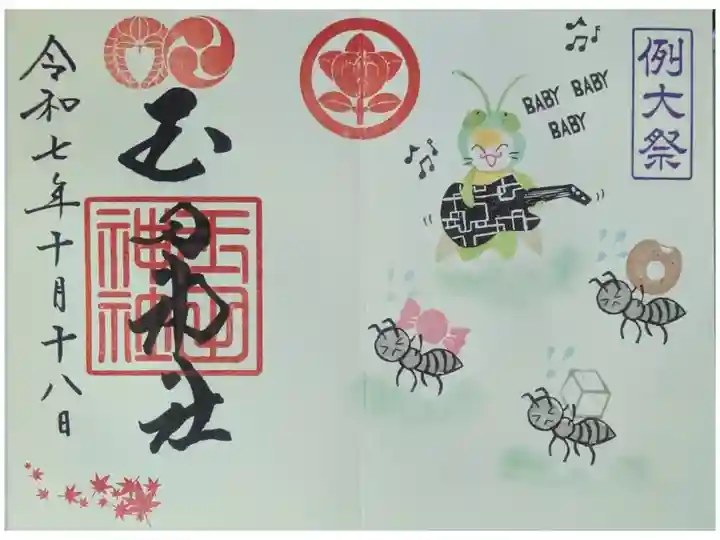 例大祭
BABY BABY
BABY
玉田神社
玉田
神社
令和七年十月十八日